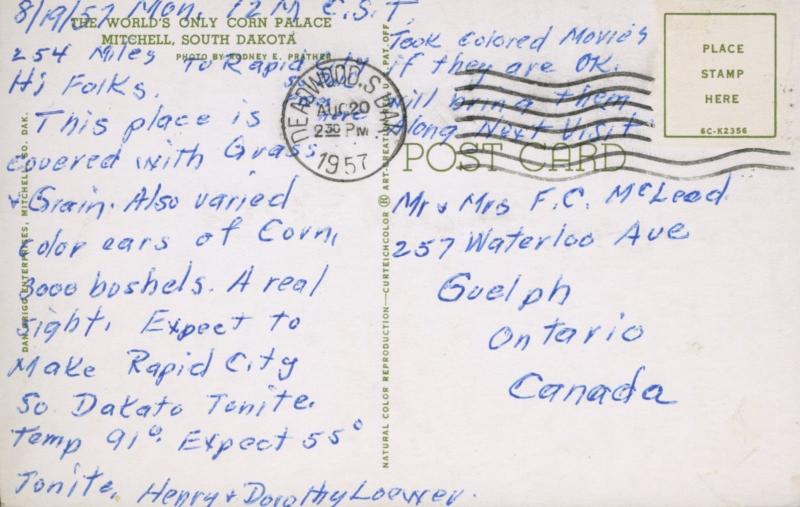 8/19/57 Mon. 12 M C.S.T.
THE WORLD'S ONLY CORN PALACE
MITCHELL, SOUTH DAKOTA
PHOTO BY RODNEY E. PRATHER
254 Miles To Rapid City
Hi Folks.
This place is
covered with Grass
+ Grain. Also varied
color ears of Corn,
3000 boshels. A real
sight. Expect to
Make Rapid City
So Dakato Tonite.
Temp 91°. Expect 55°
Tonite. Henry + Dorothy Loewer.
DAN GRIGG ENTERPRISES, MITCHELL, SO. DAK.
DEADWOOD, S. DAK.
AUG 20
2 30 PM
1957
NATURAL COLOR REPRODUCTION—CURTEICHCOLOR ® ART-CREATION U.S. PAT. OFF.
Took Colored Movies
if they are OK.
will bring them
Along Next Visit
PLACE
STAMP
HERE
6C-K2356
POST CARD
Mr + Mrs F.C. McLeod
257 Waterloo Ave
Guelph
Ontario
Canada